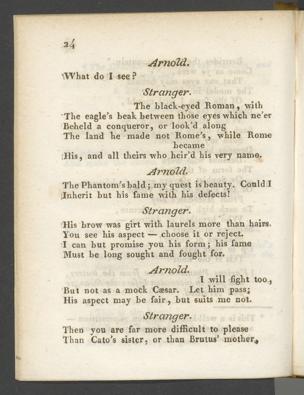 24
Arnold.
What do I see?
Stranger.
The black-eyed Roman, with
The eagle's beak between those eyes which ne'er
Beheld a conqueror, or look'd along
The land he made not Rome's, while Rome
became
His, and all theirs who heir'd his very name.
Arnold.
The Phantom's bald; my quest is beauty. Could I
Inherit but his fame with his defects!
Stranger.
His brow was girt with laurels more than hairs.
You see his aspect — choose it or reject.
I can but promise you his form; his fame
Must be long sought and fought for.
Arnold.
I will fight too,
But not as a mock Cæsar. Let him pass;
His aspect may be fair, but suits me not.
Stranger.
Then you are far more difficult to please
Than Cato's sister, or than Brutus' mother,